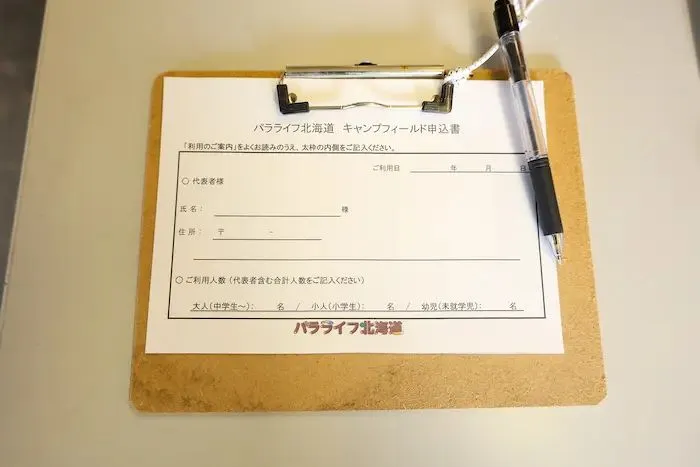 パラライフ北海道 キャンプフィールド申込書
「利用のご案内」をよくお読みのうえ、太枠の内側をご記入ください。
ご利用日 年 月 日
○ 代表者様
氏名: 様
住所: 〒 -
○ ご利用人数(代表者含む合計人数をご記入ください)
大人(中学生～): 名 / 小人(小学生): 名 / 幼児(未就学児): 名
パラライフ北海道